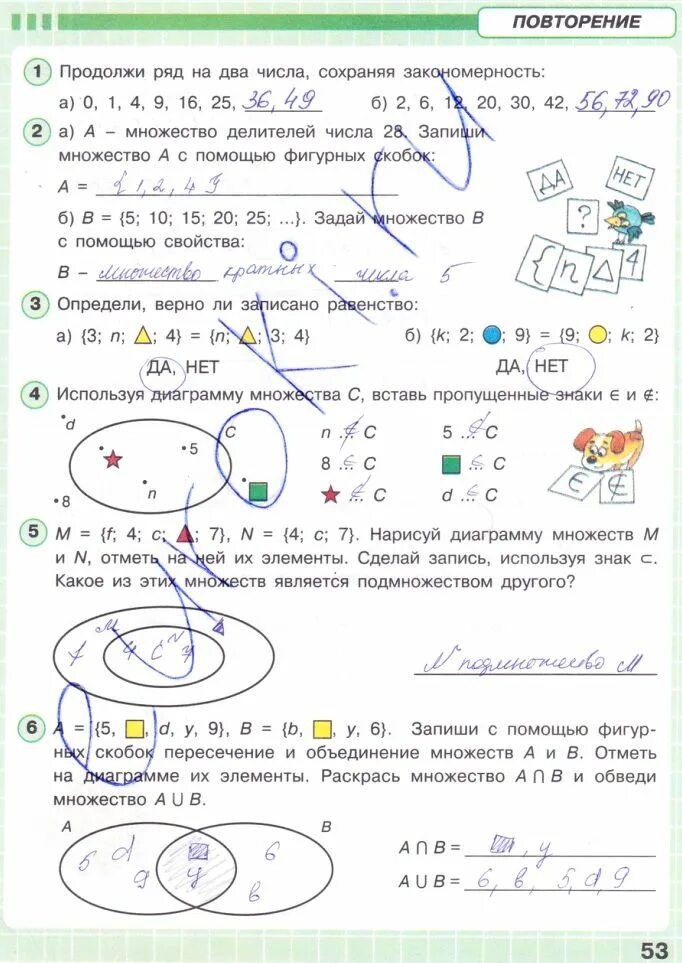 ПОВТОРЕНИЕ
1 Продолжи ряд на два числа, сохраняя закономерность:
а) 0, 1, 4, 9, 16, 25, 36, 49 б) 2, 6, 12, 20, 30, 42, 56, 72, 90
2 а) A – множество делителей числа 28. Запиши
множество A с помощью фигурных скобок:
A = {1, 2, 4
б) B = {5; 10; 15; 20; 25; ...}. Задай множество B
с помощью свойства:
B – множество кратных числа 5
ДА НЕТ
?
{ n △ 4
3 Определи, верно ли записано равенство:
а) {3; n; △; 4} = {n; △; 3; 4} б) {k; 2; ●; 9} = {9; ●; k; 2}
ДА, НЕТ ДА, НЕТ
4 Используя диаграмму множества C, вставь пропущенные знаки ∈ и ∉:
d C
5
n
8
n ∉ C 5 ∉ C
8 ∈ C ■ ∈ C
★ ∉ C d ∈ C
∈ ∉
5 M = {f; 4; c; ▲; 7}, N = {4; c; 7}. Нарисуй диаграмму множеств M
и N, отметь на ней их элементы. Сделай запись, используя знак ⊂.
Какое из этих множеств является подмножеством другого?
M N
f 4 c 7
N подмножество M
6 A = {5, ■, d, y, 9}, B = {b, ■, y, 6}. Запиши с помощью фигур-
ных скобок пересечение и объединение множеств A и B. Отметь
на диаграмме их элементы. Раскрась множество A ∩ B и обведи
множество A ∪ B.
A B
5 d 9 y 6 b
A ∩ B = ■, y
A ∪ B = 6, b, 5, d, 9
53